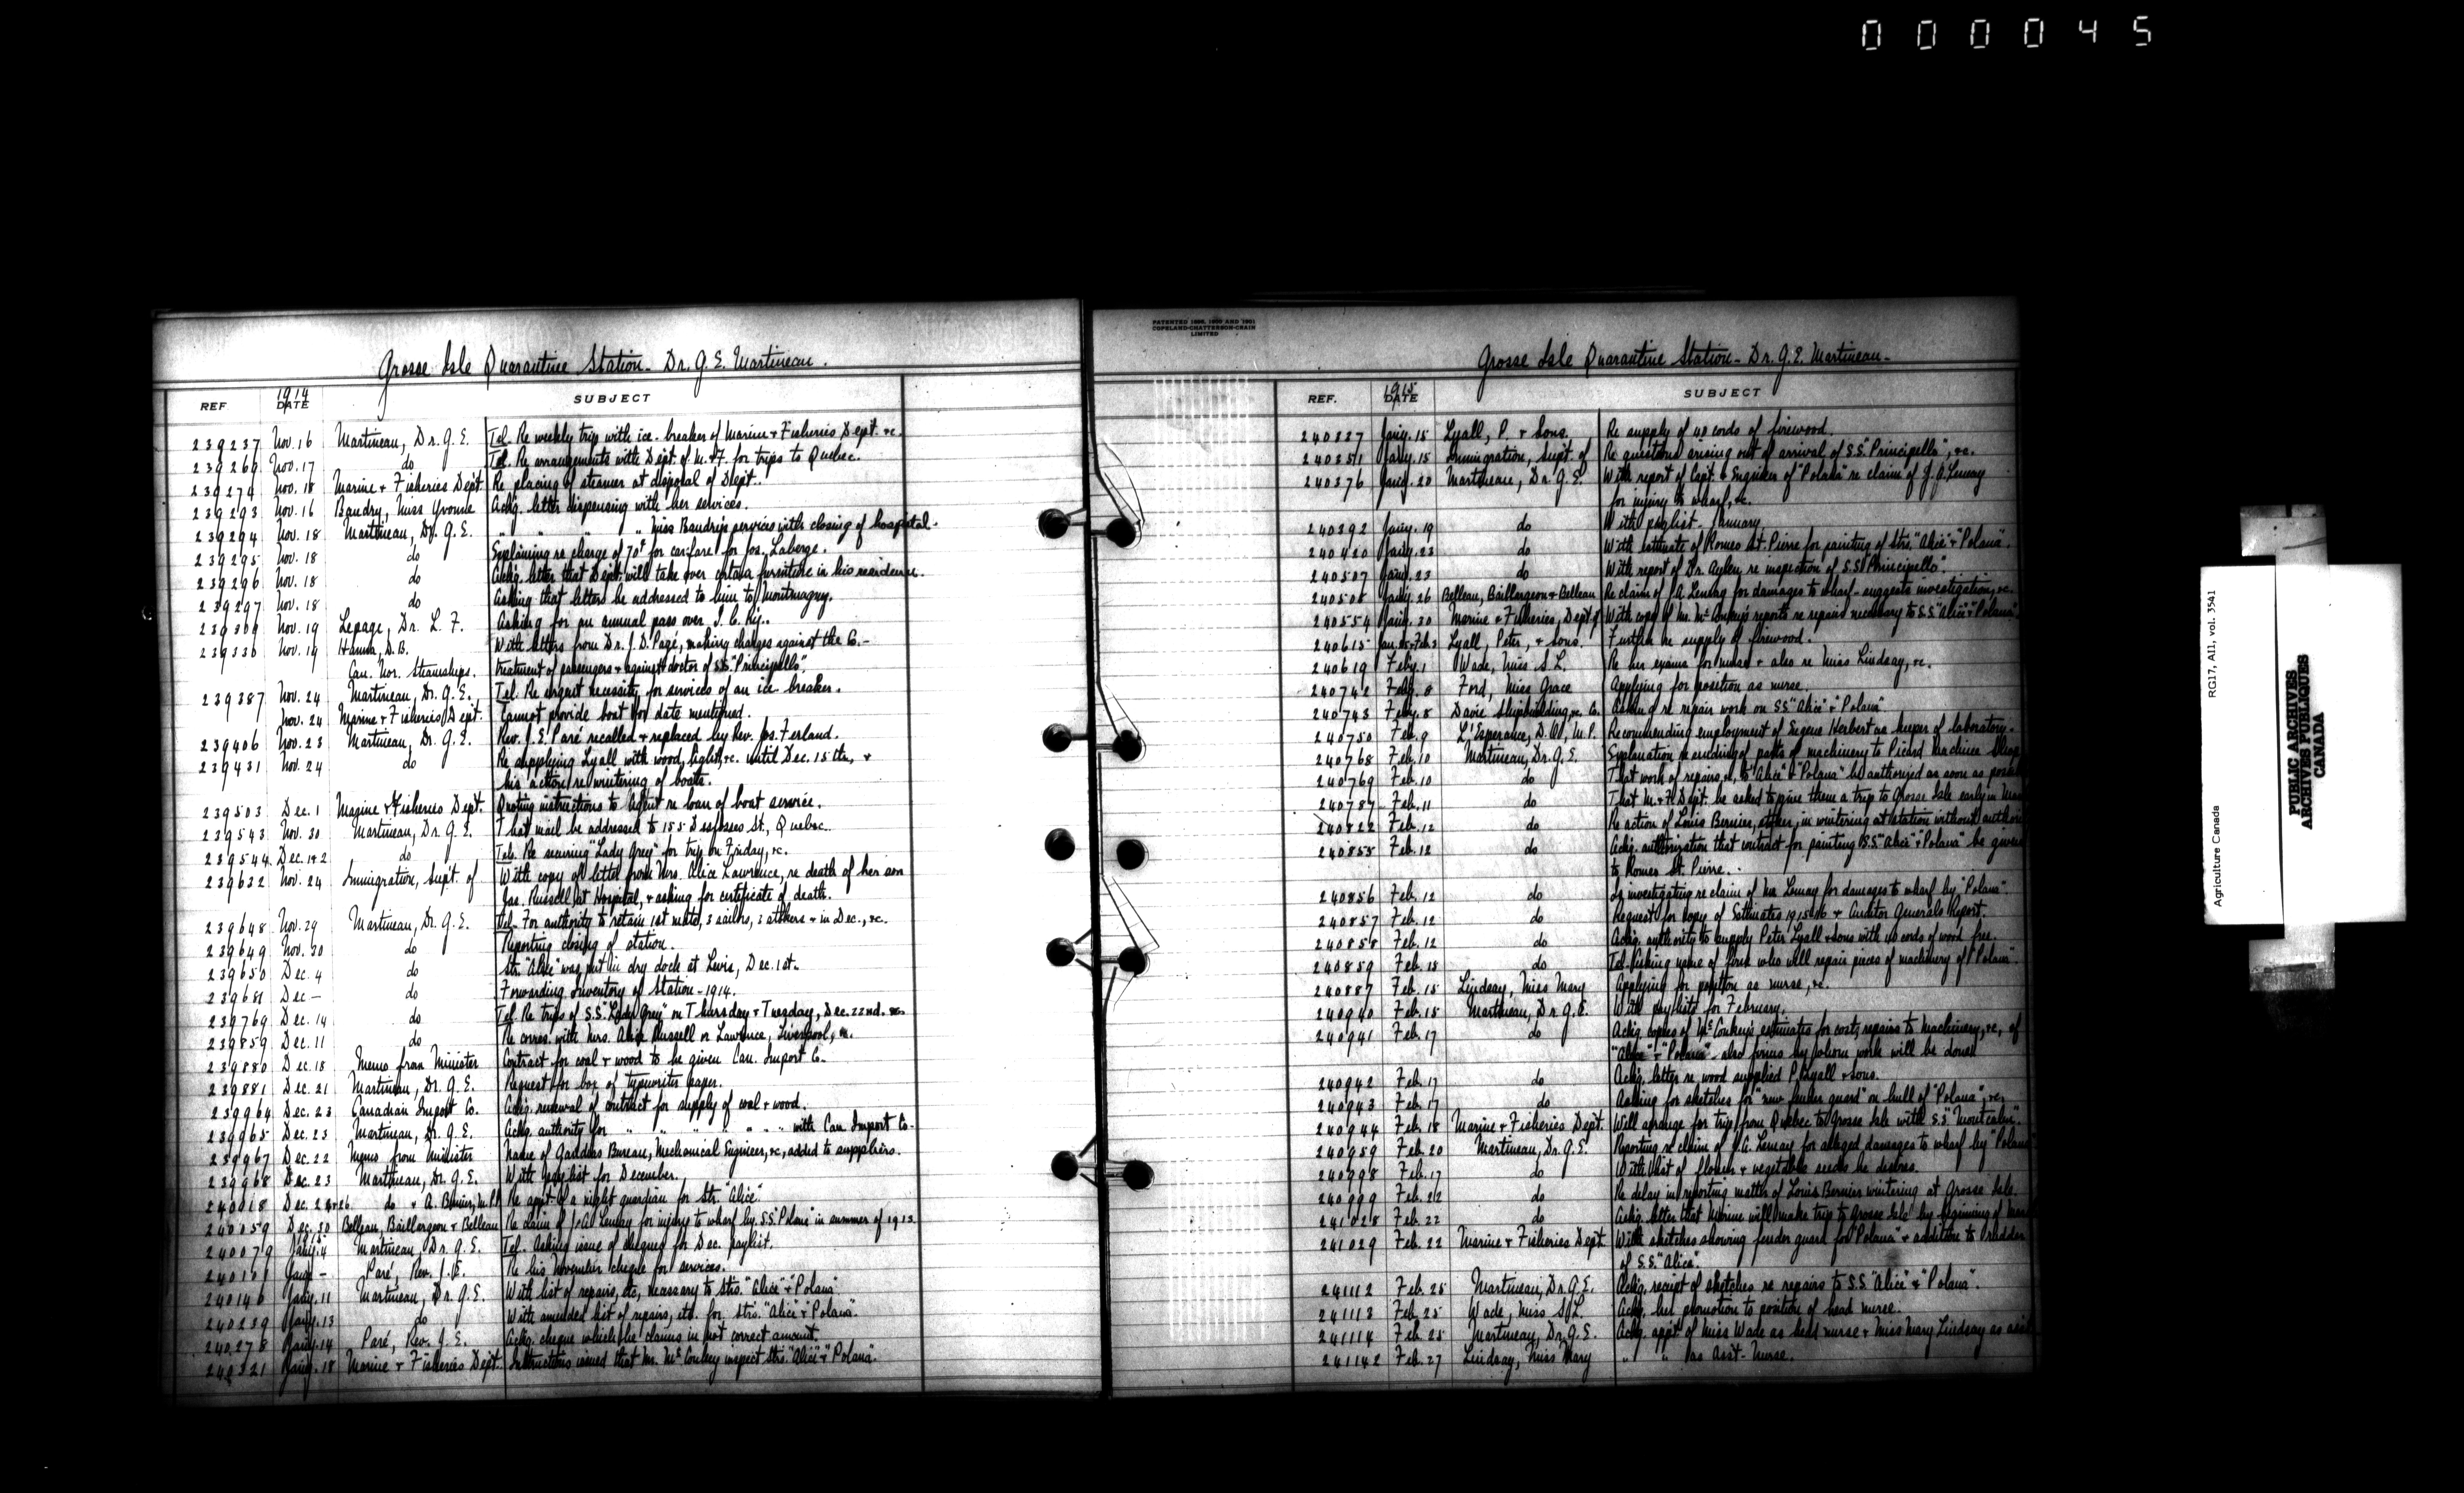 000045
Grosse Isle Quarantine Station - Dr. G. E. Martineau.
REF 1914 DATE SUBJECT
239237 Nov. 16 Martineau, Dr. G. E. Tel. Re weekly trip with ice-breaker of Marine & Fisheries Dept. &c.
239269 Nov. 17 do Tel. Re arrangements with Dept. of M. & F. for trips to Quebec.
239274 Nov. 18 Marine & Fisheries Dept Re placing of steamer at disposal of Dept.
239293 Nov. 16 Baudry, Miss Yvonne Ackg. letter dispensing with her services.
239294 Nov. 18 Martineau, Dr. G. E. " " " Miss Baudry's services with closing of hospital.
239295 Nov. 18 do Explaining re charge of 70¢ for carfare for Jos. Laberge.
239296 Nov. 18 do Ackg. letter that Dept. will take over certain furniture in his residence.
239297 Nov. 18 do Asking that letters be addressed to him to Montmagny.
239309 Nov. 19 Lepage, Dr. L. F. Asking for an annual pass over I. C. Ry.
239336 Nov. 19 Hanna, D. B. With letters from Dr. J. D. Pagé, making charges against the Co.-
Can. Nor. Steamships. treatment of passengers & against doctor of S.S. "Principello".
239387 Nov. 24 Martineau, Dr. G. E. Tel. Re urgent necessity for services of an ice breaker.
Nov. 24 Marine & Fisheries Dept. Cannot provide boat for date mentioned.
239406 Nov. 23 Martineau, Dr. G. E. Rev. J. E. Paré recalled & replaced by Rev. Jos. Ferland.
239431 Nov. 24 do Re supplying Lyall with wood, light, &c. until Dec. 15th, &
his action re wintering of boats.
239503 Dec. 1 Marine & Fisheries Dept. Quoting instructions to Agent re loan of boat service.
239543 Nov. 30 Martineau, Dr. G. E. That mail be addressed to 155 Desfosses St., Quebec.
239544 Dec. 1 & 2 do Tel. Re securing "Lady Grey" for trip on Friday, &c.
239632 Nov. 24 Immigration, Supt. of With copy of letter from Mrs. Alice Lawrence, re death of her son
Jas. Russell at Hospital, & asking for certificate of death.
239648 Nov. 29 Martineau, Dr. G. E. Tel. For authority to retain 1st mate, 3 sailors, 3 stokers & in Dec., &c.
239649 Nov. 30 do Reporting closing of station.
239650 Dec. 4 do Str. "Alice" was put in dry dock at Levis, Dec. 1st.
239681 Dec - do Forwarding inventory of Station - 1914.
239769 Dec. 14 do Tel. Re trips of S.S. "Lady Grey" on Thursday & Tuesday, Dec. 22nd. &c.
239859 Dec. 11 do Re corres. with Mrs. Alice Russell or Lawrence, Liverpool, &c.
239880 Dec. 18 Memo from Minister Contract for coal & wood to be given Can. Import Co.
239881 Dec. 21 Martineau, Dr. G. E. Request for box of typewriter paper.
239964 Dec. 23 Canadian Import Co. Ackg. renewal of contract for supply of coal & wood.
239965 Dec. 23 Martineau, Dr. G. E. Ackg. authority for " " " " " " with Can. Import Co.
239967 Dec. 22 Memo from Minister Name of Gaddeas Bureau, Mechanical Engineer, &c, added to suppliers.
239968 Dec. 23 Martineau, Dr. G. E. With paylist for December.
240018 Dec. 24 & 26. do & A. M.P. Re appt. of a night guardian for Str. "Alice".
240059 Dec. 30 Belleau, Baillargeon & Belleau Re claim of J. A. Lemay for injury to wharf by S.S. "Polana" in summer of 1913.
240079 Jany. 4 Martineau, Dr. G. E. Tel. Asking issue of cheques for Dec. paylist.
240131 Jany - Paré, Rev. J. E. Re his November cheque for services.
240146 Jany. 11 Martineau, Dr. G. E. With list of repairs, etc, necessary to Strs. "Alice" & "Polana"
240239 Jany. 13 do With amended list of repairs, etc. for Strs. "Alice" & "Polana".
240278 Jany. 14 Paré, Rev. J. E. Ackg. cheque which he claims in not correct amount.
240321 Jany. 18 Marine & Fisheries Dept. Instructions issued that Mr. McConkey inspect Strs. "Alice" & "Polana".
PATENTED 1896, 1900 AND 1901
COPELAND-CHATTERSON-CRAIN
LIMITED
Grosse Isle Quarantine Station - Dr. G. E. Martineau -
REF. 1915 DATE SUBJECT
240327 Jany. 15 Lyall, P. & Sons. Re supply of 40 cords of firewood.
240351 Jany. 15 Immigration, Supt. of Re questions arising out of arrival of S.S. "Principello", &c.
240376 Jany. 20 Martineau, Dr. G. E. With report of Capt. & Engineer of "Polana" re claim of J. A. Lemay
for injury to wharf, &c.
240392 Jany. 19 do With paylist - January.
240420 Jany. 23 do With estimate of Romeo St. Pierre for painting of strs. "Alice" & "Polana".
240507 Jany. 23 do With report of Dr. re inspection of S.S. "Principello".
240508 Jany. 26 Belleau, Baillargeon & Belleau Re claim of J. A. Lemay for damages to wharf - suggests investigation, &c.
240554 Jany. 30 Marine & Fisheries, Dept of With copy of Mr. McConkey's reports re repairs necessary to S.S. "Alice" & "Polana".
240615 Lyall, Peter, & Sons. Further re supply of firewood.
240619 Feby. 1 Wade, Miss S. L. Re her exams for nurse & also re Miss Lindsay, &c.
240742 Feby. 8 Ford, Miss Grace Applying for position as nurse.
240743 Feby. 8 Davie Shipbuilding, &c. Co. Asking re repair work on S.S. "Alice" & "Polana"
240750 Feb. 9 L'Esperance, D. O., M.P. Recommending employment of Eugene Herbert as keeper of laboratory.
240768 Feb. 10 Martineau, Dr. G. E. Explanation re sending of parts of machinery to Picard Machine Shop
240769 Feb. 10 do That work of repairs, &c, to "Alice" & "Polana" be authorized as soon as
240787 Feb. 11 do That M. & F. Dept. be asked to give them a trip to Grosse Isle early in
240822 Feb. 12 do Re action of Louis Bernier, stoker, in wintering at station without
240855 Feb. 12 do Ackg. authorization that contract for painting S.S. "Alice" & "Polana" be given
to Romeo St. Pierre.
240856 Feb. 12 do Is investigating re claim of Mr. Lemay for damages to wharf by "Polana".
240857 Feb. 12 do Request for copy of Estimates 1915-16 & Auditor Generals Report.
240858 Feb. 12 do Ackg. authority to supply Peter Lyall & Sons with 40 cords of wood free.
240859 Feb. 15 do Tel. Asking name of firm who will repair pieces of machinery of "Polana".
240887 Feb. 15 Lindsay, Miss Mary Applying for position as nurse, &c.
240940 Feb. 15 Martineau, Dr. G. E. With paylists for February.
240941 Feb. 17 do Ackg. copies of McConkey's estimates for cost, repairs to machinery, &c, of
"Alice" & "Polana" - also firms by whom work will be done.
240942 Feb. 17 do Ackg. letter re wood supplied P. Lyall & Sons.
240943 Feb. 17 do Asking for sketches for "new fender guard" on hull of "Polana", &c.
240944 Feb. 18 Marine & Fisheries Dept. Will arrange for trip from Quebec to Grosse Isle with S.S. "Montcalm".
240959 Feb. 20 Martineau, Dr. G. E. Reporting re claim of J. A. Lemay for alleged damages to wharf by "Polana
240998 Feb. 17 do With list of flower & vegetable seeds he desires.
240999 Feb. 22 do Re delay in reporting matter of Louis Bernier wintering at Grosse Isle.
241028 Feb. 22 do Ackg. letter that Marine will make trip to Grosse Isle by beginning of
241029 Feb. 22 Marine & Fisheries Dept With sketches showing fender guard for "Polana" & addition to rudder
of S.S. "Alice".
241112 Feb. 25 Martineau, Dr. G. E. Ackg. receipt of sketches re repairs to S.S. "Alice" & "Polana".
241113 Feb. 25 Wade, Miss S. L. Ackg. her promotion to position of head nurse.
241114 Feb. 25 Martineau, Dr. G. E. Ackg. appt. of Miss Wade as head nurse & Miss Mary Lindsay as
241142 Feb. 27 Lindsay, Miss Mary " " as Asst. Nurse.
Agriculture Canada RG17, A11, vol. 3541
PUBLIC ARCHIVES
ARCHIVES PUBLIQUES
CANADA